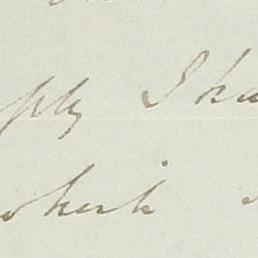 ply I ha
which